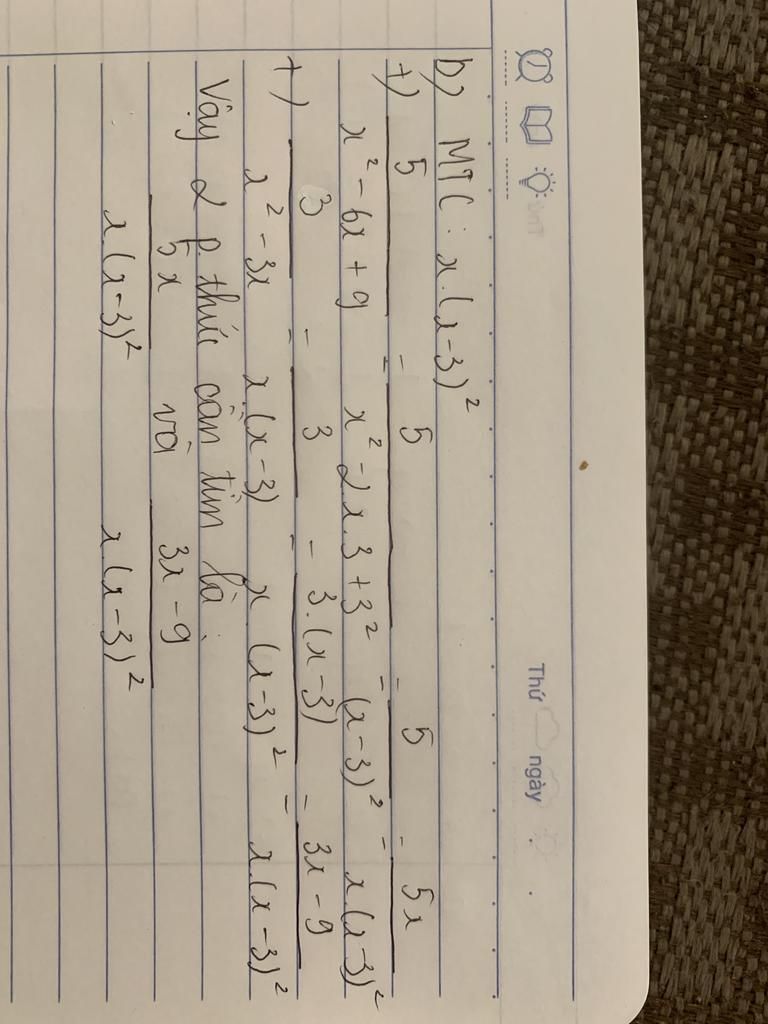 Thứ ngày
b) MTC : x.(x-3)²
+) 5/(x² - 6x + 9) = 5/(x² - 2.x.3 + 3²) = 5/(x-3)² = 5x/(x.(x-3)²)
+) 3/(x² - 3x) = 3/(x.(x-3)) = 3.(x-3)/(x.(x-3)²) = (3x - 9)/(x.(x-3)²)
Vậy 2 p.thức cần tìm là:
5x/(x.(x-3)²) và (3x - 9)/(x.(x-3)²)